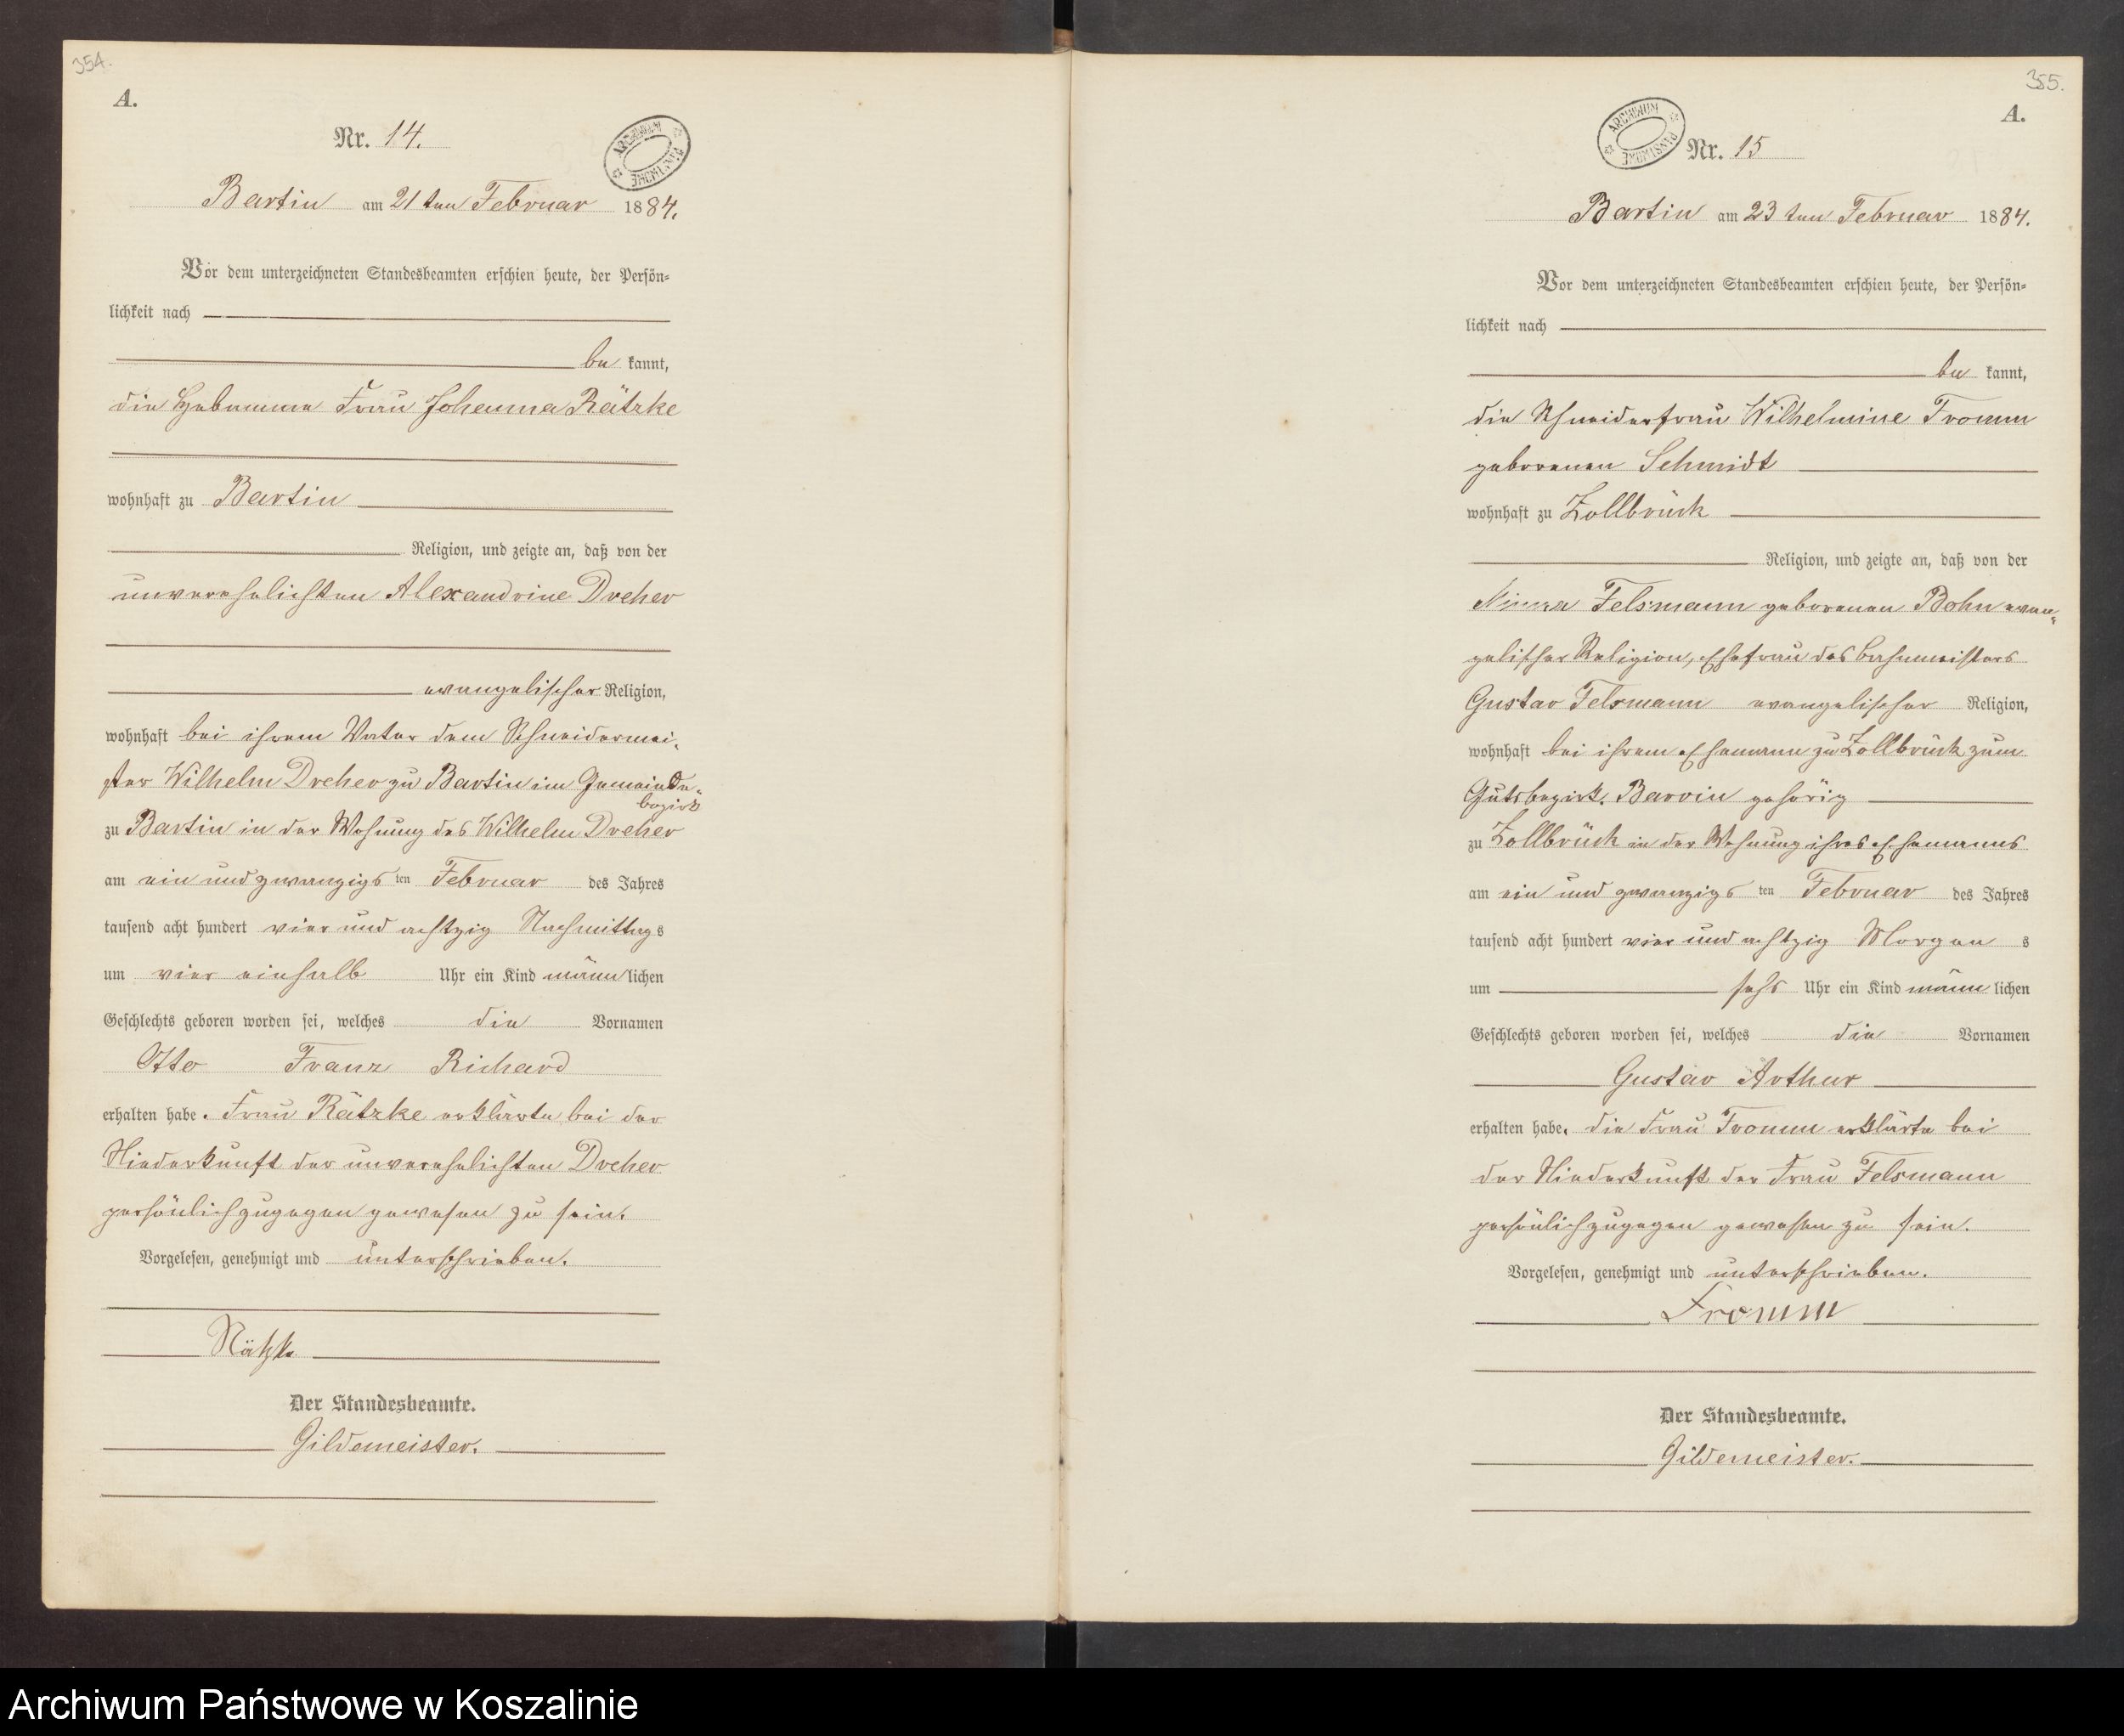 354.
A.
Nr. 14.
ARCHIWUM PAŃSTWOWE
Bartin am 21ten Februar 1884.
Vor dem unterzeichneten Standesbeamten erschien heute, der Persön-
lichkeit nach
be kannt,
die Hebamme Frau Johanna Rätzke
wohnhaft zu Bartin
Religion, und zeigte an, daß von der
unverehelichten Alexandrine Dreher
evangelischer Religion,
wohnhaft bei ihrem Vater dem Schneidermei-
ster Wilhelm Dreher zu Bartin im Gemeinde-
bezirk
zu Bartin in der Wohnung des Wilhelm Dreher
am ein und zwanzigsten Februar des Jahres
tausend acht hundert vier und achtzig Nachmittags
um vier einhalb Uhr ein Kind männlichen
Geschlechts geboren worden sei, welches die Vornamen
Otto Franz Richard
erhalten habe. Frau Rätzke erklärte bei der
Niederkunft der unverehelichten Dreher
persönlich zugegen gewesen zu sein.
Vorgelesen, genehmigt und unterschrieben.
Rätzke
Der Standesbeamte.
Gildemeister.
355.
A.
ARCHIWUM PAŃSTWOWE
Nr. 15
Bartin am 23ten Februar 1884.
Vor dem unterzeichneten Standesbeamten erschien heute, der Persön-
lichkeit nach
be kannt,
die Schneiderfrau Wilhelmine Fromm
geborenen Schmidt
wohnhaft zu Zollbrück
Religion, und zeigte an, daß von der
Felsmann geborenen Bohn evan-
gelischer Religion, Ehefrau des Bahnmeisters
Gustav Felsmann evangelischer Religion,
wohnhaft bei ihrem Ehemann zu Zollbrück zum
Gutsbezirk Barvin gehörig
zu Zollbrück in der Wohnung ihres Ehemanns
am ein und zwanzigsten Februar des Jahres
tausend acht hundert vier und achtzig Morgens
um sechs Uhr ein Kind männlichen
Geschlechts geboren worden sei, welches die Vornamen
Gustav Arthur
erhalten habe. die Frau Fromm erklärte bei
der Niederkunft der Frau Felsmann
persönlich zugegen gewesen zu sein.
Vorgelesen, genehmigt und unterschrieben.
Fromm
Der Standesbeamte.
Gildemeister.
Archiwum Państwowe w Koszalinie